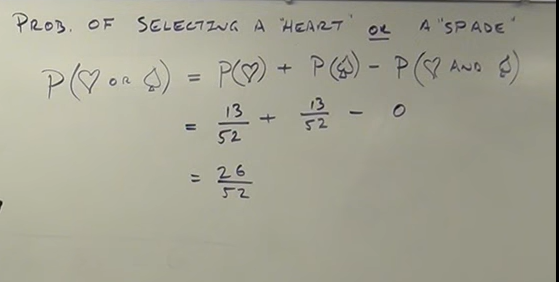 PROB. OF SELECTING A "HEART" OR A "SPADE"
P(♡ OR ♤) = P(♡) + P(♤) - P(♡ AND ♤)
= 13/52 + 13/52 - 0
= 26/52